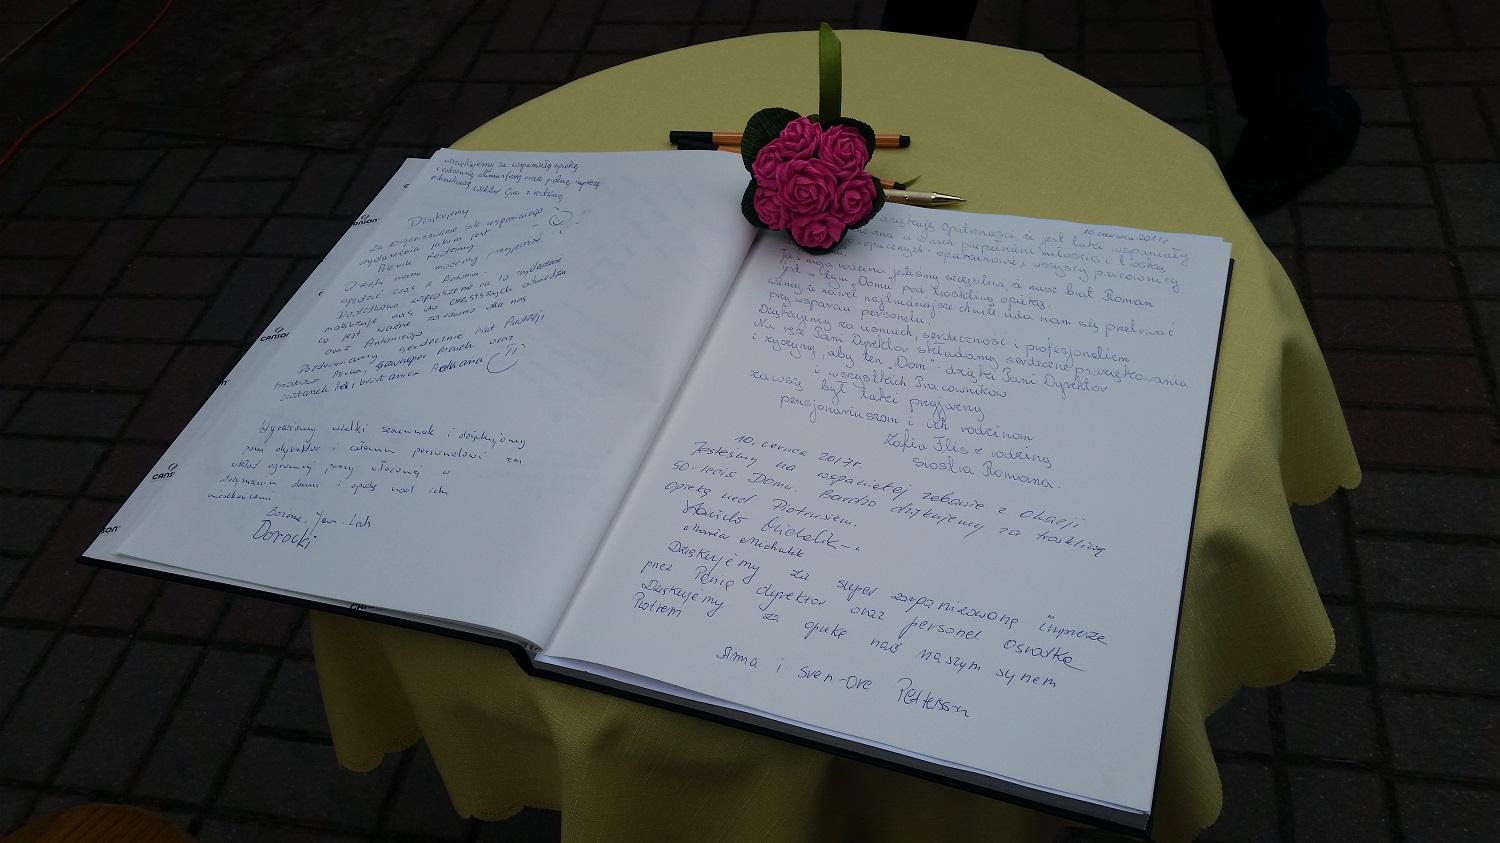 Dziękujemy za wspaniałą opiekę
i rodzinną atmosferę oraz piękną imprezę
z rodziną
Dziękujemy
za zorganizowanie tak wspaniałego
wydarzenia jakim jest
Piknik Rodzinny.
Dzięki niemu możemy przyjechać i
spędzić czas z Antonim.
Dodatkowo zaproszenie na to wydarzenie
mobilizuje nas do częstszych odwiedzin
co jest ważne zarówno dla nas
oraz Antoniego
Pozdrawiamy serdecznie brat Andrzej,
bratowa oraz
bratanek bratanica Adriana
Wyrażamy wielki szacunek i dziękujemy
pani dyrektor i całemu personelowi za
wkład ogromnej pracy włożonej w
utrzymanie domu i opiekę nad ich
mieszkańcami
Bożena, Jan
Dorocki
CANSON
CANSON
CANS
10 czerwca 2017r
opatrzności, że jest taki wspaniały
w nich pełnym miłości i troską
opiekunowie i wszyscy pracownicy
Ja i moja rodzina jesteśmy szczęśliwi, że nasz brat Roman
jest w tym "Domu" pod troskliwą opieką.
Wiemy, że nawet najtrudniejsze chwile uda nam się przetrwać
przy wsparciu personelu.
Dziękujemy za uśmiech, serdeczność i profesjonalizm
Na ręce Pani Dyrektor składamy serdeczne podziękowania
i życzymy, aby ten "Dom" dzięki Pani Dyrektor
i wszystkich Pracowników
zawsze był taki przyjazny
pensjonariuszom i ich rodzinom
Zofia Flis z rodziną
siostra Romana.
10. czerwca 2017r.
Jesteśmy na wspaniałej zabawie z okazji
50-lecia Domu. Bardzo dziękujemy za troskliwą
opiekę nad Piotrusiem.
Michalik
Maria Michalik
Dziękujemy za super zorganizowaną imprezę
przez Panią dyrektor oraz personel ośrodka
Dziękujemy za opiekę nad naszym synem
Piotrem
Anna i Sven-Ove Pettersson